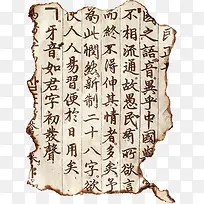 之語音異乎中國
不相流通故愚民有所欲言
而終不得伸其情者多矣予
為此憫然新制二十八字欲
人人易習便於日用矣
ㄱ牙音如君字初發聲